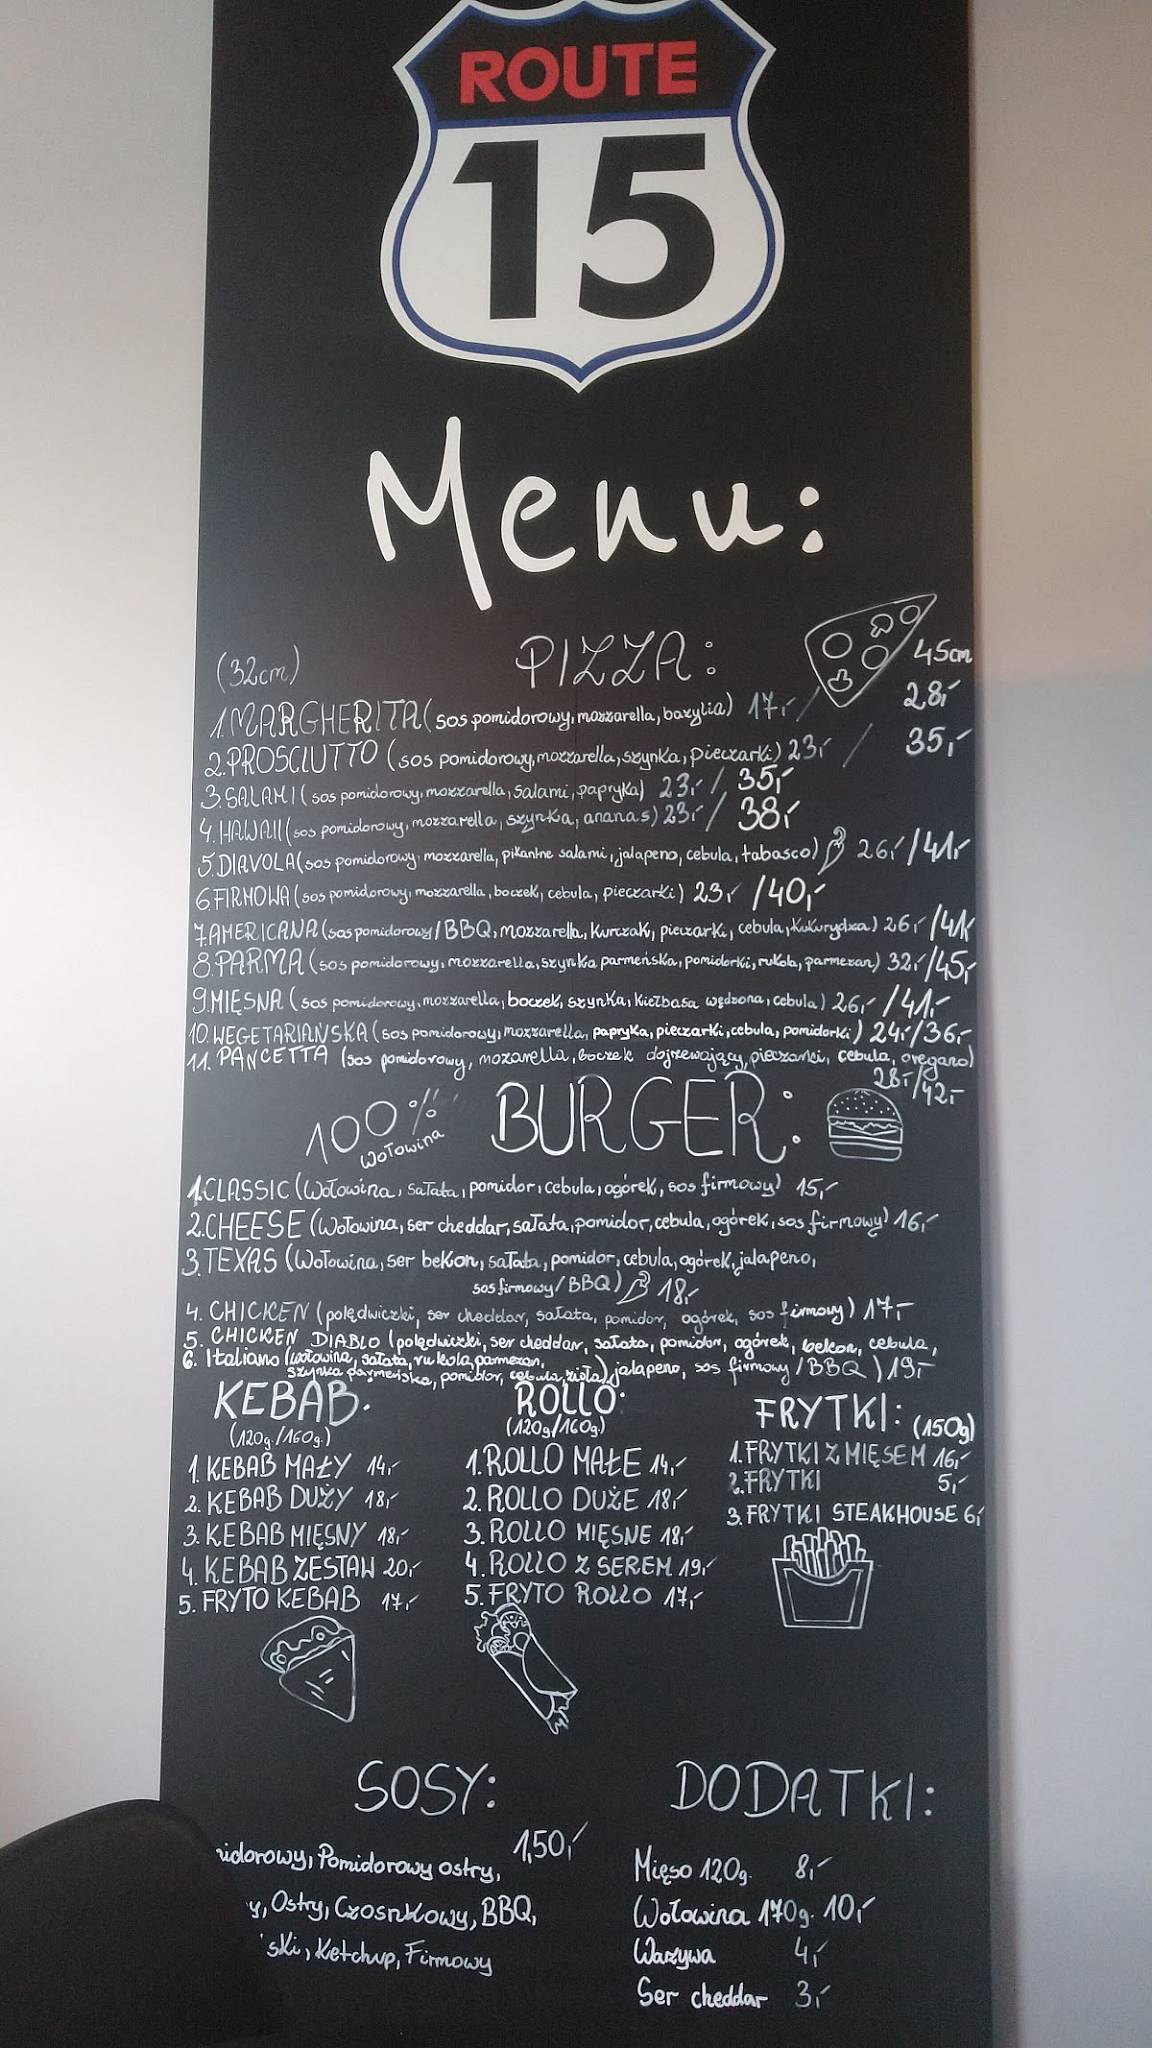 ROUTE
15
Menu:
(32cm) PIZZA: 45cm
1. MARGHERITA (sos pomidorowy, mozzarella, bazylia) 17,-/ 28,-
2. PROSCIUTTO (sos pomidorowy, mozzarella, szynka, pieczarki) 23,- / 35,-
3. SALAMI (sos pomidorowy, mozzarella, salami, papryka) 23,-/ 35,-
4. HAWAII (sos pomidorowy, mozzarella, szynka, ananas) 23,-/ 38,-
5. DIAVOLA (sos pomidorowy, mozzarella, pikantne salami, jalapeno, cebula, tabasco) 26,-/41,-
6. FIRMOWA (sos pomidorowy, mozzarella, boczek, cebula, pieczarki) 23,- /40,-
7. AMERICANA (sos pomidorowy/BBQ, mozzarella, kurczak, pieczarki, cebula, kukurydza) 26,-/41,-
8. PARMA (sos pomidorowy, mozzarella, szynka parmeńska, pomidorki, rukola, parmezan) 32,-/45,-
9. MIĘSNA (sos pomidorowy, mozzarella, boczek, szynka, kiełbasa wędzona, cebula) 26,- /41,-
10. WEGETARIAŃSKA (sos pomidorowy, mozzarella, papryka, pieczarki, cebula, pomidorki) 24,-/36,-
11. PANCETTA (sos pomidorowy, mozarella, boczek dojrzewający, pieczarki, cebula, oregano)
28,-/42,-
100% wołowina BURGER:
1. CLASSIC (Wołowina, sałata, pomidor, cebula, ogórek, sos firmowy) 15,-
2. CHEESE (Wołowina, ser cheddar, sałata, pomidor, cebula, ogórek, sos firmowy) 16,-
3. TEXAS (Wołowina, ser bekon, sałata, pomidor, cebula, ogórek, jalapeno,
sos firmowy/BBQ) 18,-
4. CHICKEN (polędwiczki, ser cheddar, sałata, pomidor, ogórek, sos firmowy) 17,-
5. CHICKEN DIABLO (polędwiczki, ser cheddar, sałata, pomidor, ogórek, bekon, cebula,
jalapeno, sos firmowy/BBQ) 19,-
6. Italiano (wołowina, sałata, rukola, parmezan,
szynka parmeńska, pomidor, cebula, zioła)
KEBAB:
(120g/160g)
1. KEBAB MAŁY 14,-
2. KEBAB DUŻY 18,-
3. KEBAB MIĘSNY 18,-
4. KEBAB ZESTAW 20,-
5. FRYTO KEBAB 17,-
ROLLO:
(120g/160g)
1. ROLLO MAŁE 14,-
2. ROLLO DUŻE 18,-
3. ROLLO MIĘSNE 18,-
4. ROLLO Z SEREM 19,-
5. FRYTO ROLLO 17,-
FRYTKI: (150g)
1. FRYTKI Z MIĘSEM 16,-
2. FRYTKI 5,-
3. FRYTKI STEAKHOUSE 6,-
SOSY:
1,50,-
midorowy, Pomidorowy ostry,
y, Ostry, Czosnkowy, BBQ,
ski, Ketchup, Firmowy
DODATKI:
Mięso 120g. 8,-
Wołowina 170g. 10,-
Warzywa 4,-
Ser cheddar 3,-